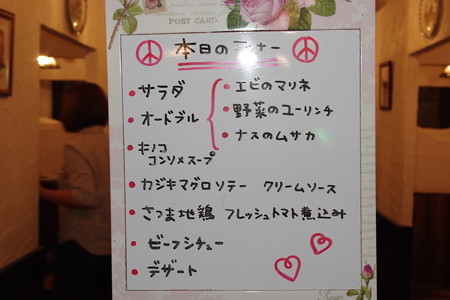 POST CARD
本日のディナー
・サラダ
・オードブル
・エビのマリネ
・野菜のユーリンチ
・ナスのムサカ
・キノコ
コンソメスープ
・カジキマグロソテー クリームソース
・さつま地鶏 フレッシュトマト煮込み
・ビーフシチュー
・デザート